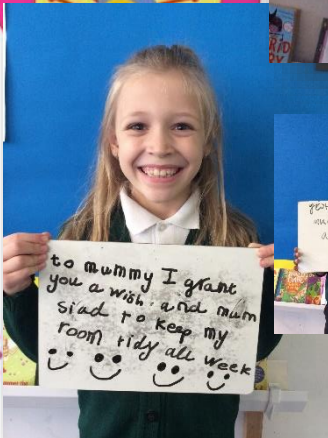 to mummy I grant
you a wish and mum
siad to keep my
room tidy all week